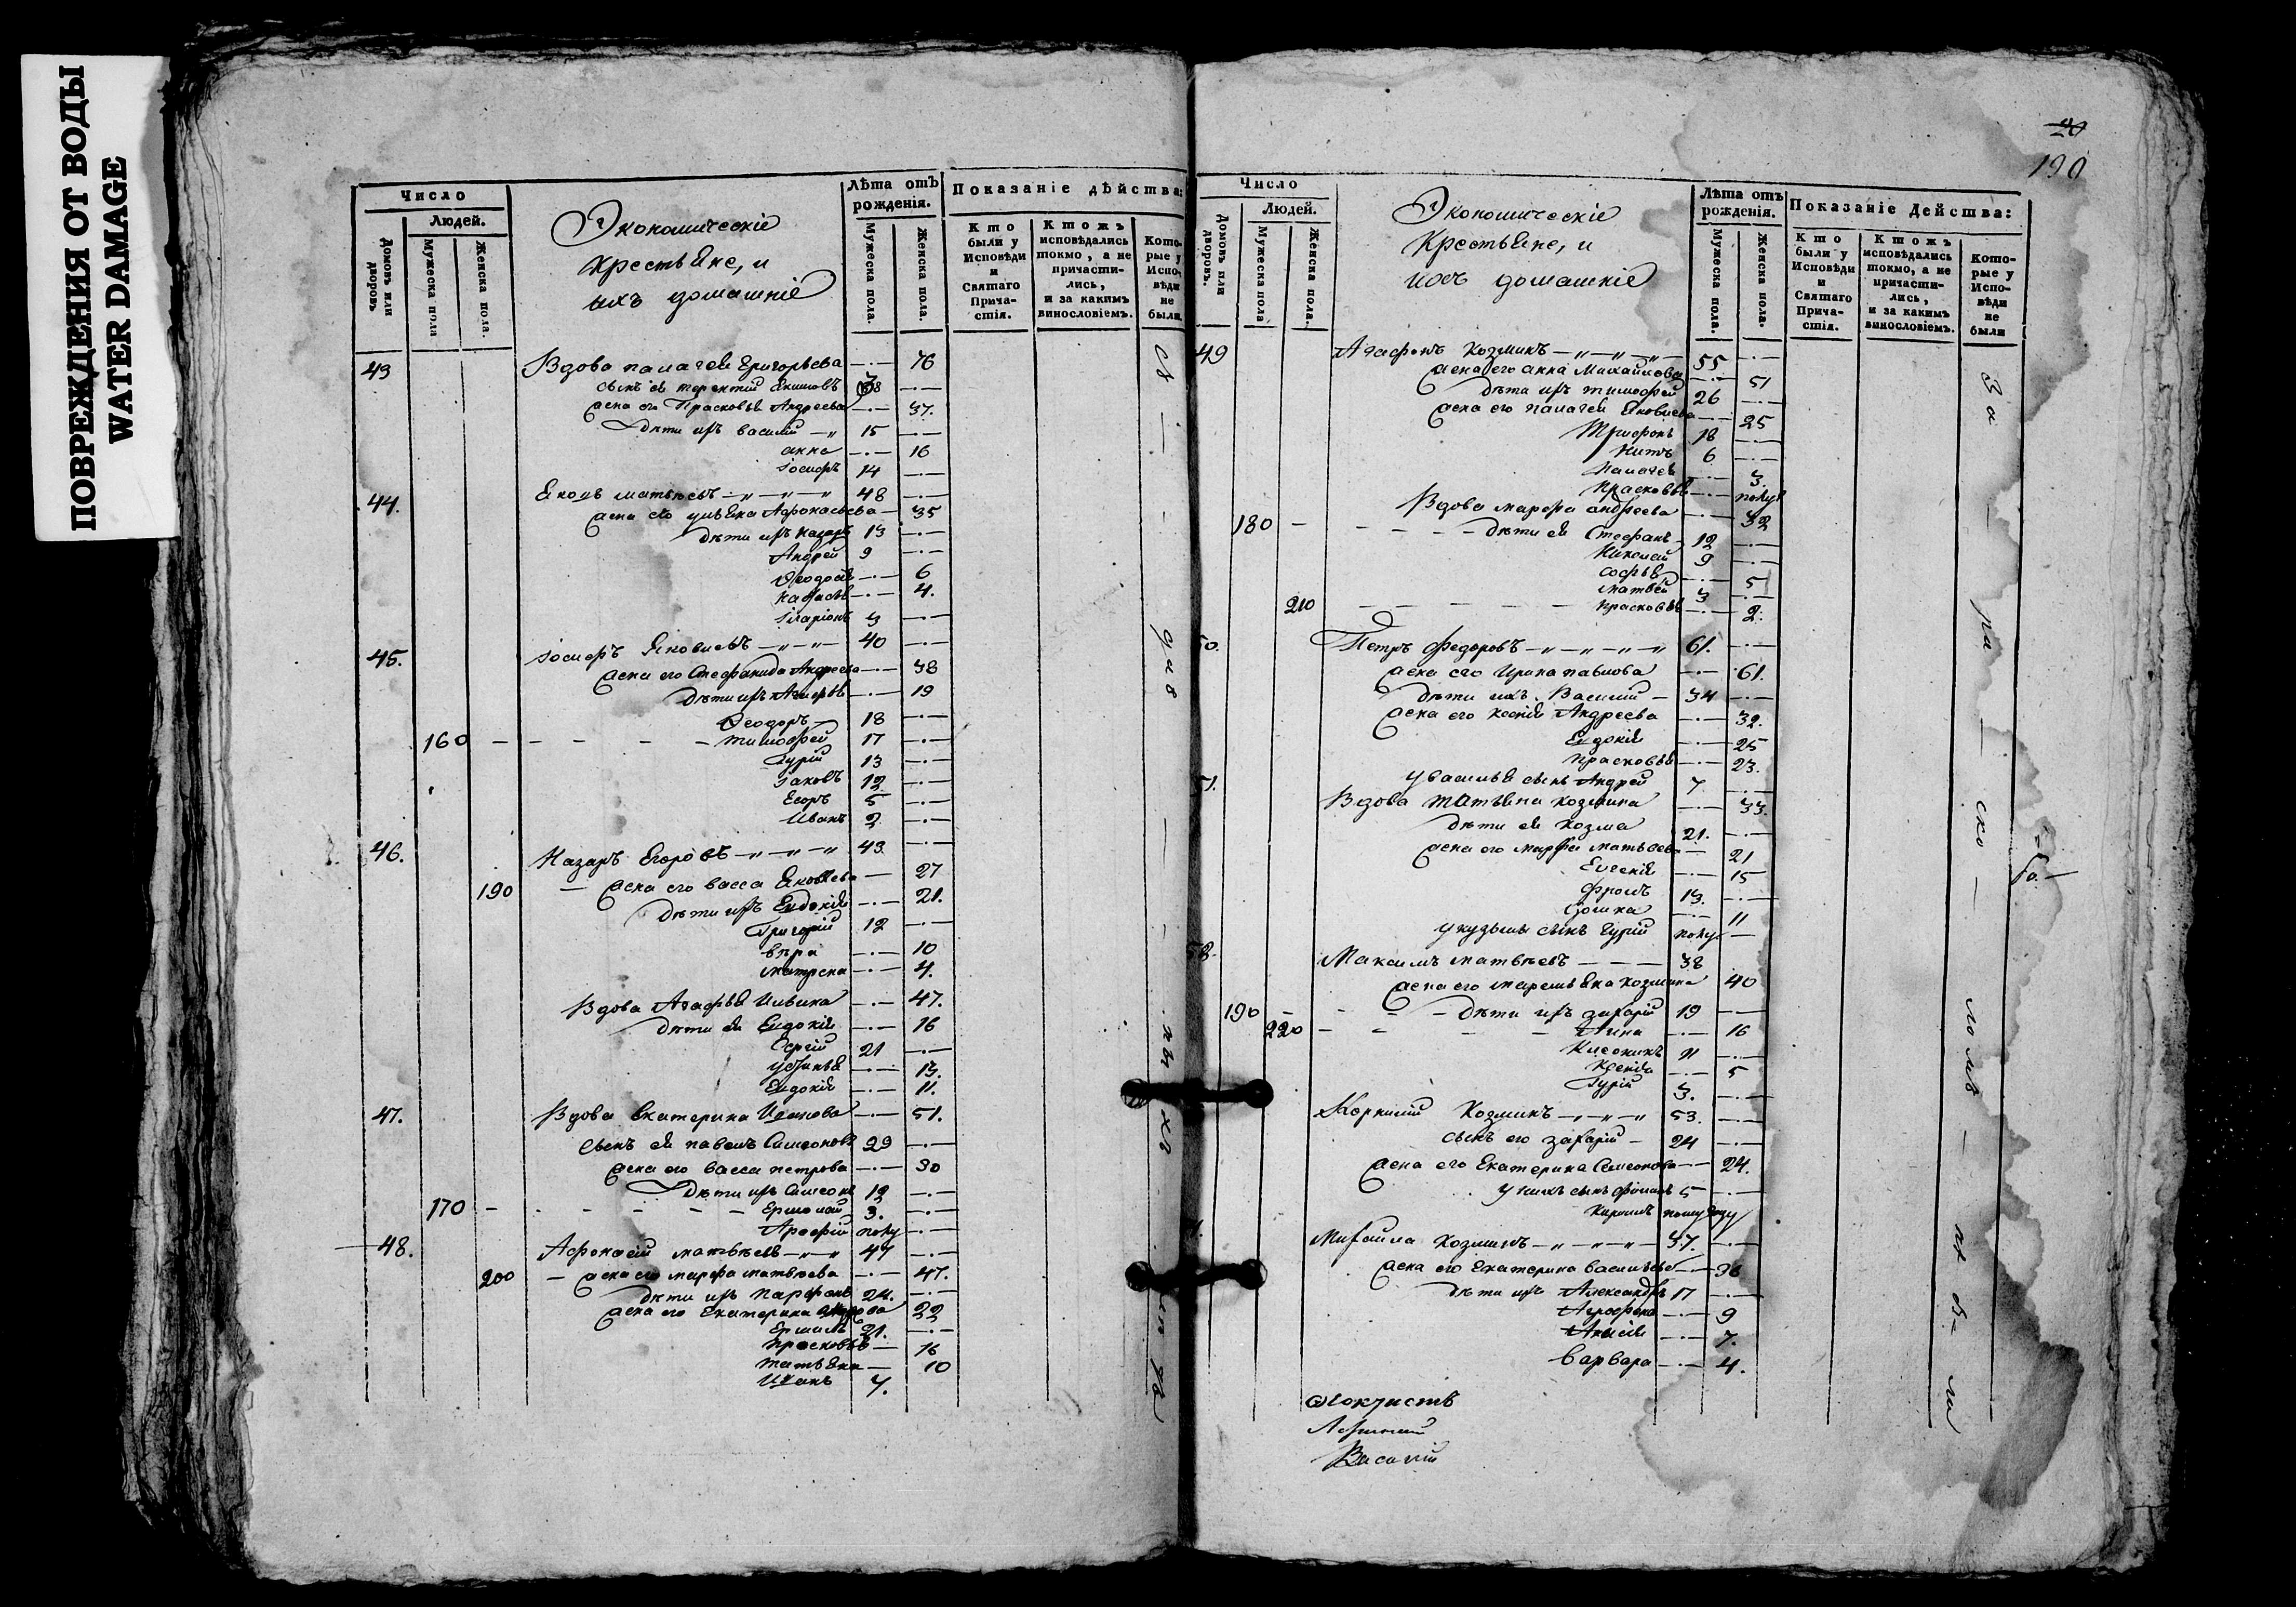 ПОВРЕЖДЕНИЯ ОТ ВОДЫ
WATER DAMAGE
Число
Людей.
Домовъ или дворовъ
Мужеска пола
Женска пола.
Экономическіе
крестьяне, и
ихъ домашніе
Лѣта отъ рожденія.
Мужеска пола.
Женска пола.
Показаніе дѣйства:
Кто были у Исповѣди и Святаго Прича-стія.
Ктожъ исповѣдались токмо, а не причасти-лись, и за какимъ винословіемъ.
Кото-рые у Испо-вѣди не были
43 Вдова палагея Григорьева —·— 76
сынъ ея терентий 38 —·—
жена его Прасковья Андреева —·— 37.
Дѣти ихъ василий 15 —·—
анна —·— 16
Іосифъ 14 —·—
44. Яковъ матвѣевъ 48 —·—
жена его ульяна Афонасьева 35
дѣти ихъ назаръ 13 —·—
Андрей 9 —·—
Ѳеодосія —·— 6
—·— 4.
Іларіонъ 3 —·—
45. Іосифъ Яковлевъ 40 —·—
жена его Стефанида Андреева —·— 38
дѣти ихъ Агафья —·— 19
Ѳеодоръ 18 —·—
160 — — — — тимофей 17 —·—
Гурій 13 —·—
Іаковъ 12 —·—
Егоръ 5 —·—
Иванъ 2 —·—
46. Назаръ Егоровъ 43 —·—
190 — жена его васса Яковлева — 27
дѣти ихъ Евдокія —·— 21.
Григорій 12 —·—
вѣра —·— 10
матрена —·— 4.
Вдова Агафья Ильина —·— 47.
дѣти ея Евдокія —·— 16
Сергій 21 —·—
устинья —·— 13.
Евдокія —·— 11.
47. Вдова Екатерина Иванова —·— 51.
сынъ ея павелъ Симеоновъ 29 —·—
жена его васса петрова —·— 30
Дѣти ихъ Симеонъ 12 —·—
170 — — — — Ермолай 3. —·—
Арефій полу —·—
48. Афонасій матвѣевъ 47 —·—
200 — жена его марфа матвѣева —·— 47.
дѣти ихъ Парфенъ 24. —·—
жена его Екатерина 22
Ермилъ 21. —·—
прасковья — 16
татьяна — 10
Иванъ 7.
20
190
Число
Людей.
Домовъ или дворовъ.
Мужеска пола
Женска пола.
Экономическіе
Крестьяне, и
ихъ домашніе
Лѣта отъ рожденія.
Мужеска пола.
Женска пола.
Показаніе Действа:
Кто были у Исповѣди и Святаго Прича-стія.
Ктожъ исповѣдались токмо, а не причасти-лись, и за какимъ винословіемъ.
Кото-рые у Испо-вѣди не были
49 Агафонъ Козминъ 55 —·—
жена его анна Михайлова —·— 51
дѣти ихъ тимофей 26 —·—
жена его палагея Яковлева —·— 25
Трифонъ 18 —·—
Титъ 6 —·—
Палагея —·— 3.
прасковья —·— полу
Вдова марфа андреева —·— 32
180 — — — дѣти ея Стефанъ 12 —·—
Николай 9 —·—
софья —·— 5
матвей 3 —·—
210 — — — — — прасковья —·— 2.
50. Петръ Федоровъ 61. —·—
жена его Ирина павлова —·— 61.
дѣти ихъ Василий 34 —·—
жена его ксенія Андреева —·— 32.
Евдокія —·— 25
прасковья —·— 23.
у василья сынъ Андрей 7 —·—
51. Вдова татьяна козмина —·— 33.
дѣти ея козма 21. —·—
жена его марфа матвеева — 21
Евгенія 15
фролъ 13. —·—
—·— 11
у кузьмы сынъ Гурій полу —
Максимъ матвѣевъ — — — 38
жена его козмина 40
190 — — дѣти ихъ захарій 19 —·—
220 — — — — Анна —·— 16
11 —·—
Ксенія —·— 5
Гурій 3. —·—
Корнилий Козминъ 53. —·—
сынъ его захарій — 24 —·—
жена его Екатерина Симеонова — 24.
у нихъ сынъ 5 —·—
полугоду
Михаила Козминъ 37. —·—
жена его Екатерина васильева —·— 36
дѣти ихъ Александръ 17 —·—
Агрофена —·— 9
Анисія —·— 7.
варвара —·— 4.
За — ра — ско — ломъ — не бы-ли
Василій